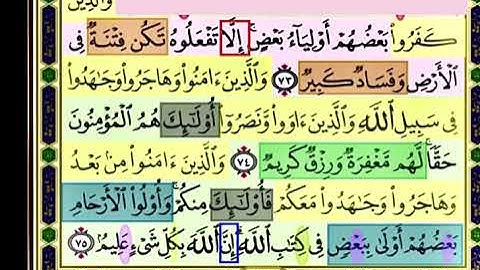 وَالَّذِينَ
كَفَرُوا۟ بَعْضُهُمْ أَوْلِيَآءُ بَعْضٍ ۚ إِلَّا تَفْعَلُوهُ تَكُن فِتْنَةٌ فِى
ٱلْأَرْضِ وَفَسَادٌ كَبِيرٌ ٧٣ وَٱلَّذِينَ ءَامَنُوا۟ وَهَاجَرُوا۟ وَجَٰهَدُوا۟
فِى سَبِيلِ ٱللَّهِ وَٱلَّذِينَ ءَاوَوا۟ وَّنَصَرُوٓا۟ أُو۟لَٰٓئِكَ هُمُ ٱلْمُؤْمِنُونَ
حَقًّا ۚ لَّهُم مَّغْفِرَةٌ وَرِزْقٌ كَرِيمٌ ٧٤ وَٱلَّذِينَ ءَامَنُوا۟ مِنۢ بَعْدُ
وَهَاجَرُوا۟ وَجَٰهَدُوا۟ مَعَكُمْ فَأُو۟لَٰٓئِكَ مِنكُمْ ۚ وَأُو۟لُوا۟ ٱلْأَرْحَامِ
بَعْضُهُمْ أَوْلَىٰ بِبَعْضٍ فِى كِتَٰبِ ٱللَّهِ ۗ إِنَّ ٱللَّهَ بِكُلِّ شَىْءٍ عَلِيمٌۢ ٧٥